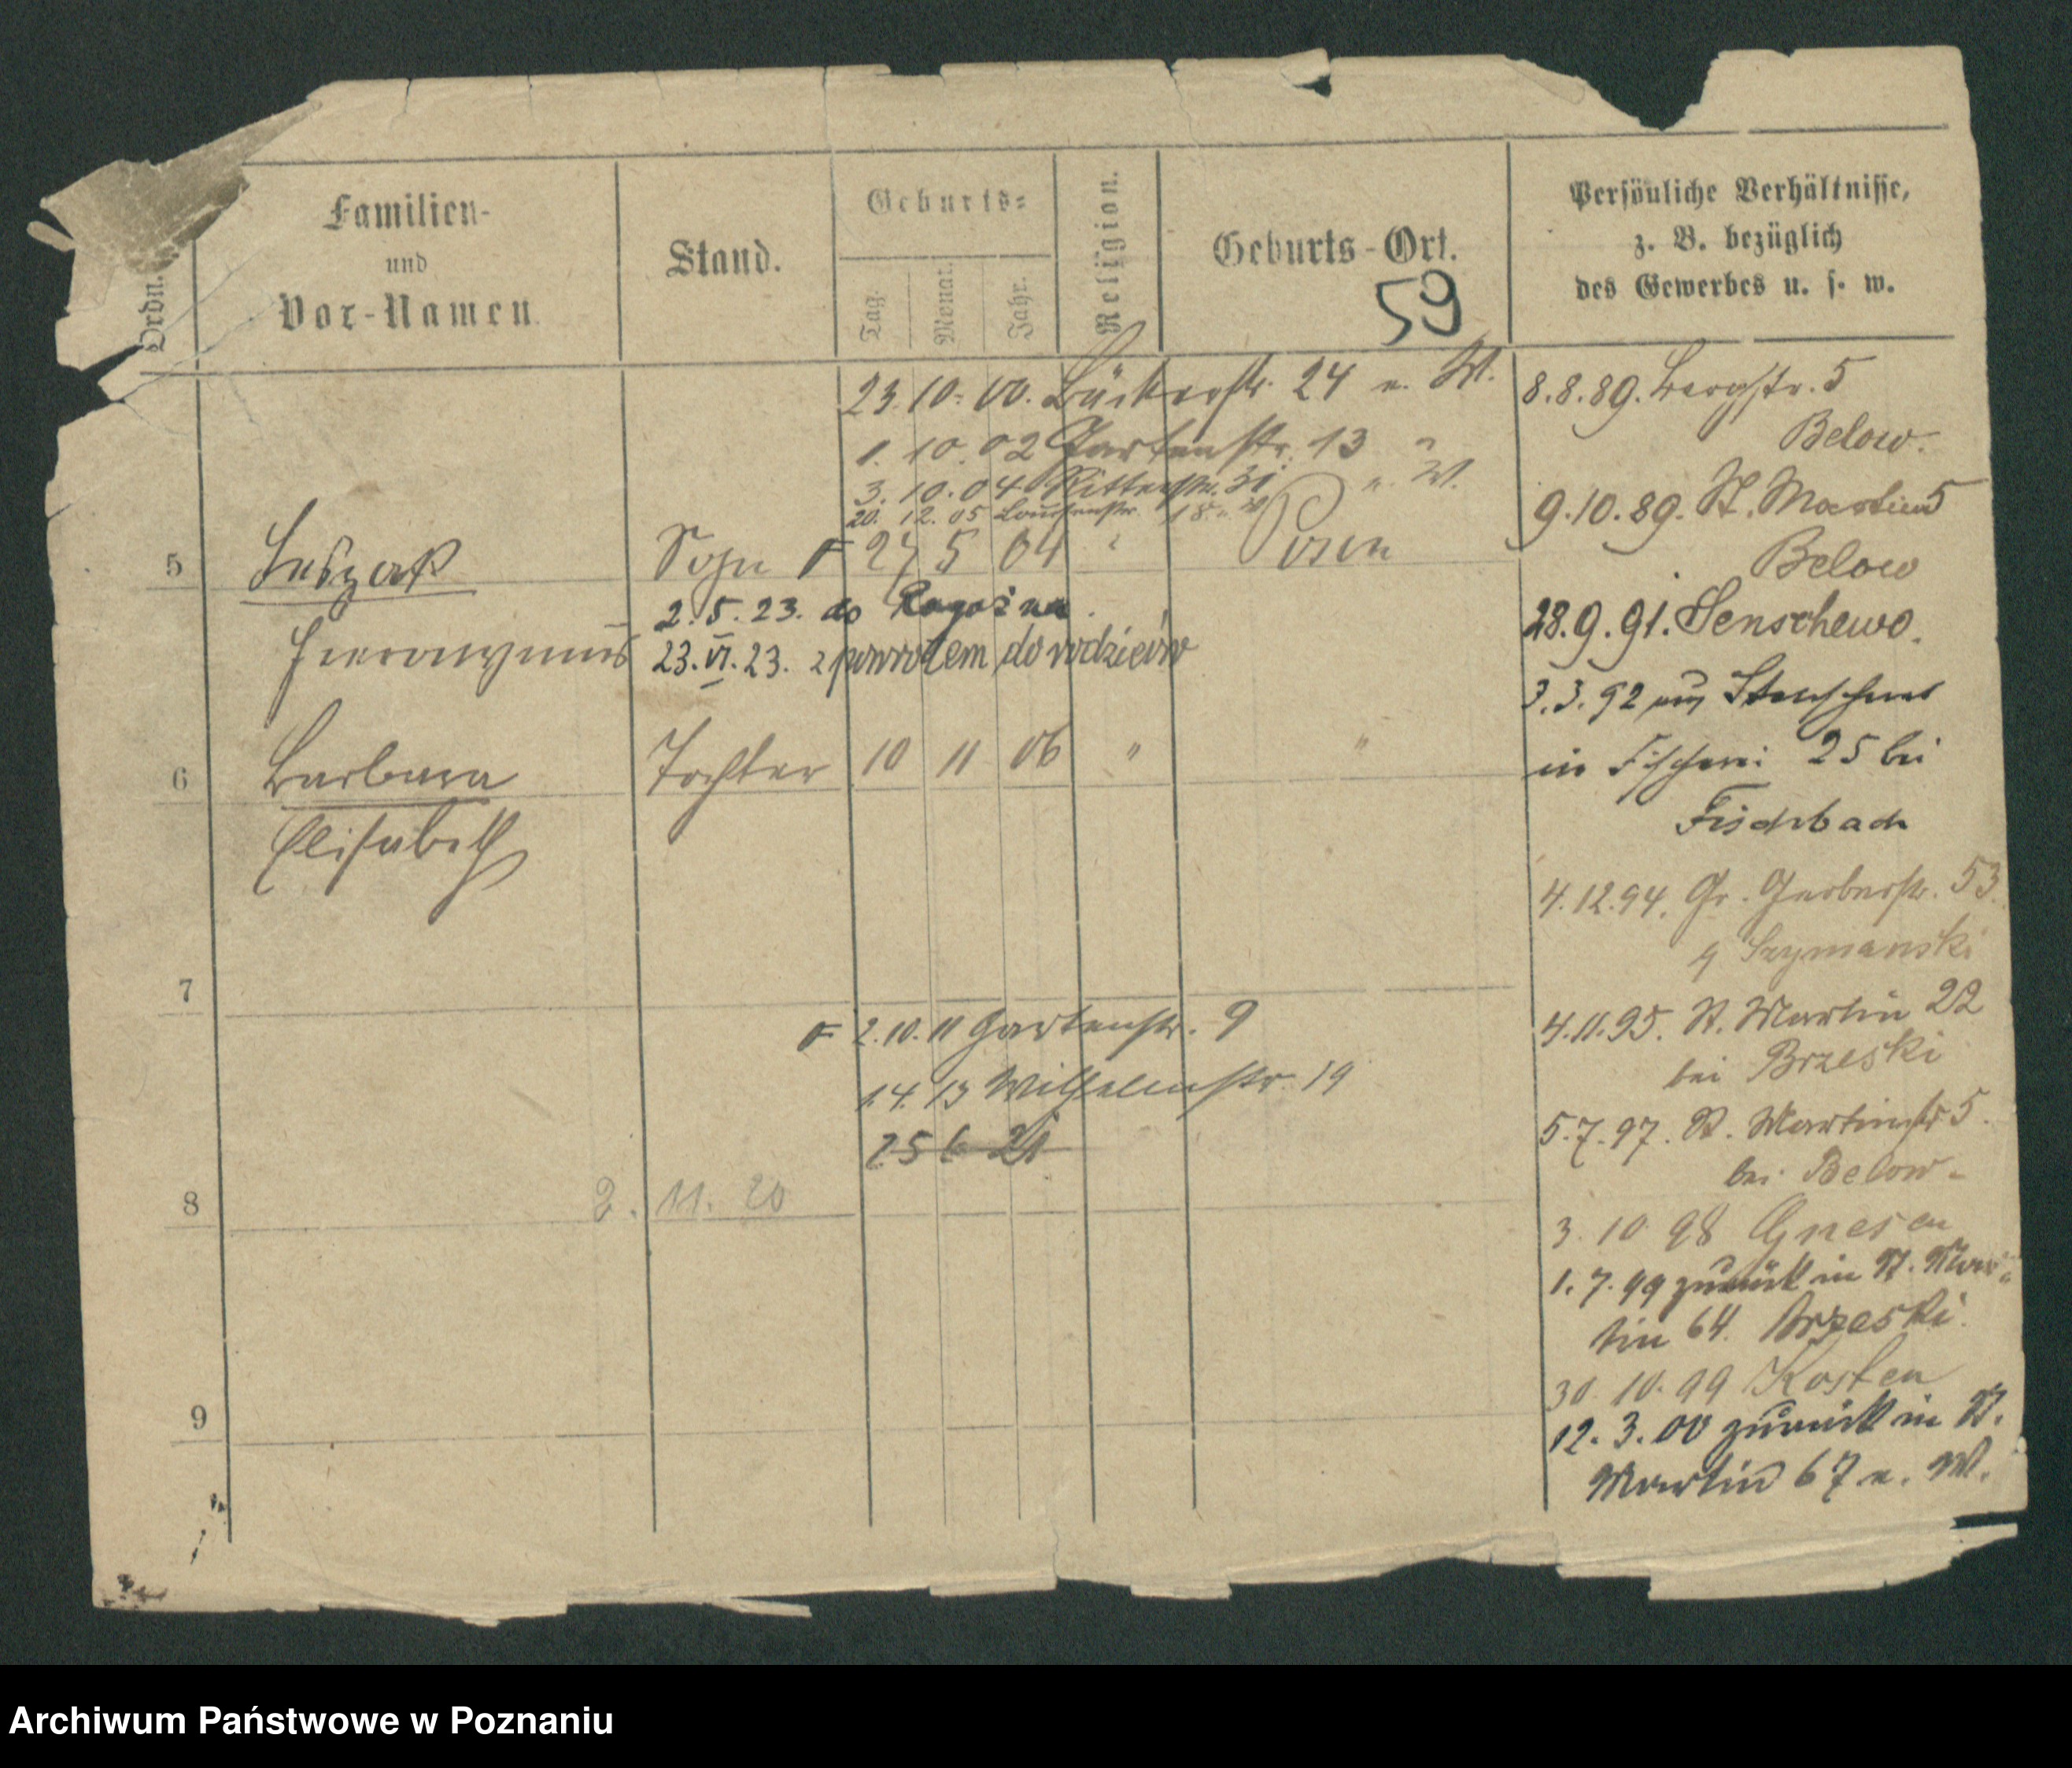 Ordn.
Familien-
und
Vor-Namen.
Stand.
Geburts-
Tag.
Monat.
Jahr.
Religion.
Geburts-Ort.
59
Persönliche Verhältnisse,
z. B. bezüglich
des Gewerbes u. s. w.
23. 10. 00. Bäckerstr. 24 e. W.
1. 10. 02 Gartenstr. 13 "
3. 10. 04 Ritterstr. 31 e. W.
20. 12. 05 18 e. W
5 Sohn 27 5 04 " Posen
Hieronymus
2. 5. 23. do
23. VI. 23. z powrotem do rodziców
6 Barbara Tochter 10 11 06 " "
Elisabeth
7
2. 10. 11 Gartenstr. 9
1. 4. 13 Wilhelmstr. 19
25 6 21
8 2. 11. 20
9
8. 8. 89. Bergstr. 5
Below.
9. 10. 89. St. Martin 5
Below
28. 9. 91. Senschewo.
3. 3. 92 aus
in Fischerei 25 bei
Fischbach
4. 12. 94. Gr. Gerberstr. 53.
Szymanski
4. 11. 95. St. Martin 22
bei Brzeski
5. 7. 97. St. Martinstr 5.
bei Below-
3. 10 98 Gnesen
1. 7. 99 zurück in St. Mar-
tin 64. Brzeski.
30. 10. 99 Kosten
12. 3. 00 zurück in St.
Martin 67 e. W.
Archiwum Państwowe w Poznaniu